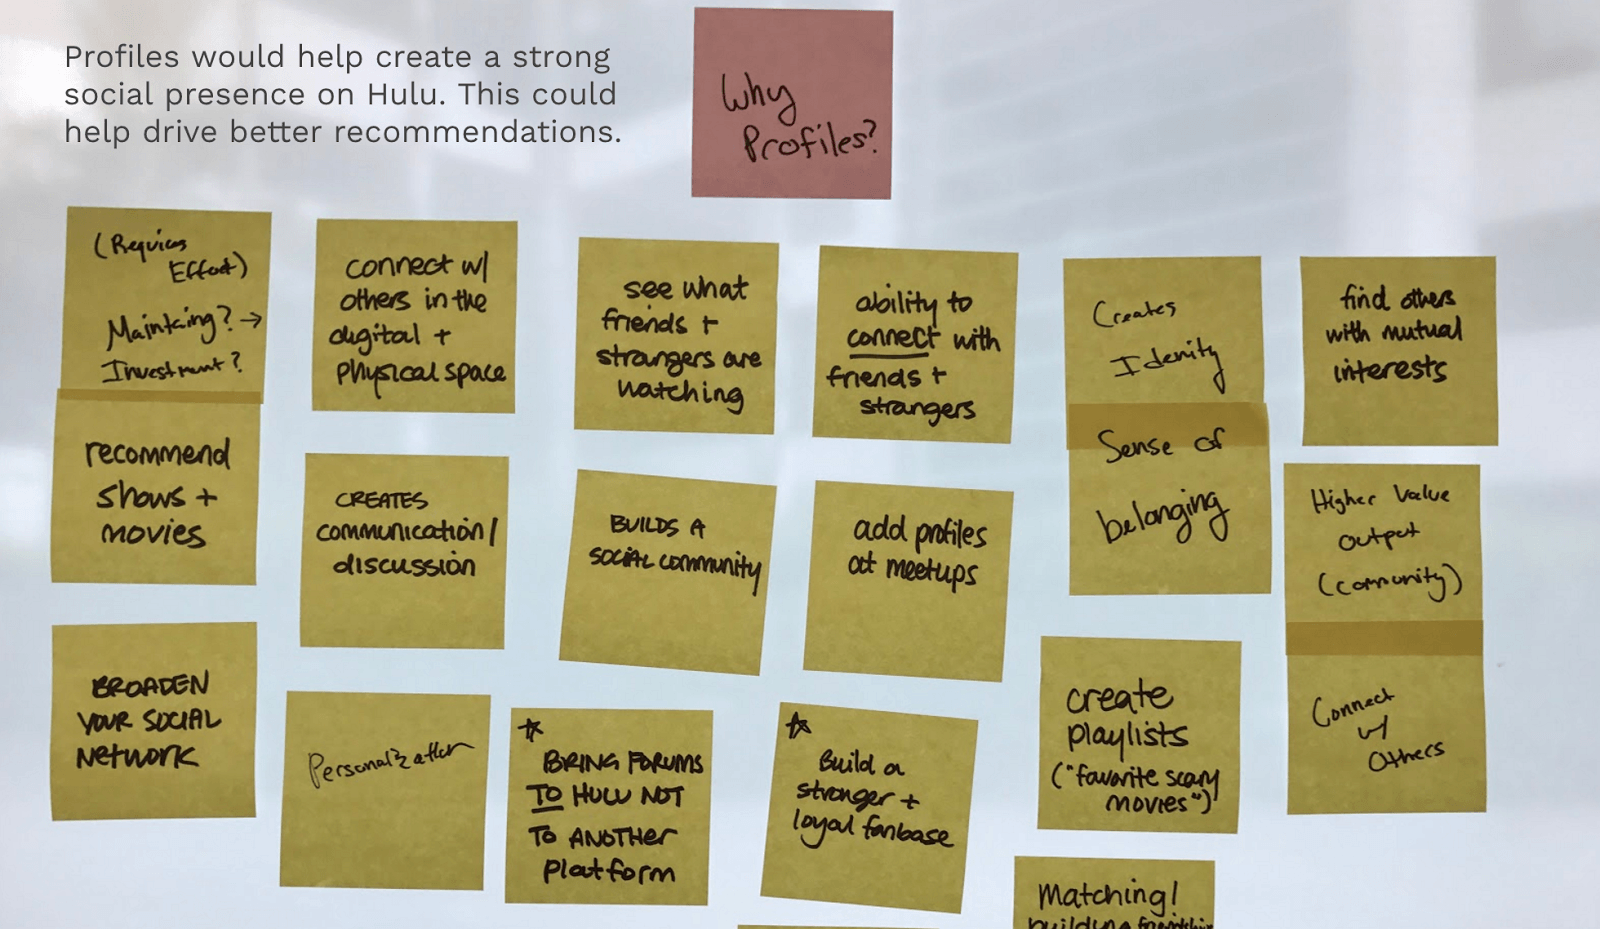 Profiles would help create a strong
social presence on Hulu. This could
help drive better recommendations.
Why
Profiles?
(Requires
Effort)
Maintaing? →
Investment?
connect w/
others in the
digital +
physical space
see what
friends +
strangers are
watching
ability to
connect with
friends +
strangers
Creates
Idenity
find others
with mutual
interests
recommend
shows +
movies
CREATES
communication/
discussion
BUILDS A
SOCIAL community
add profiles
at meetups
Sense of
belonging
Higher Value
output
(community)
BROADEN
YOUR SOCIAL
NETWORK
Personalization
BRING FORUMS
TO HULU NOT
TO ANOTHER
platform
Build a
stronger +
loyal fanbase
create
playlists
("favorite scary
movies")
Connect
w/
Others
Matching!
building friendships